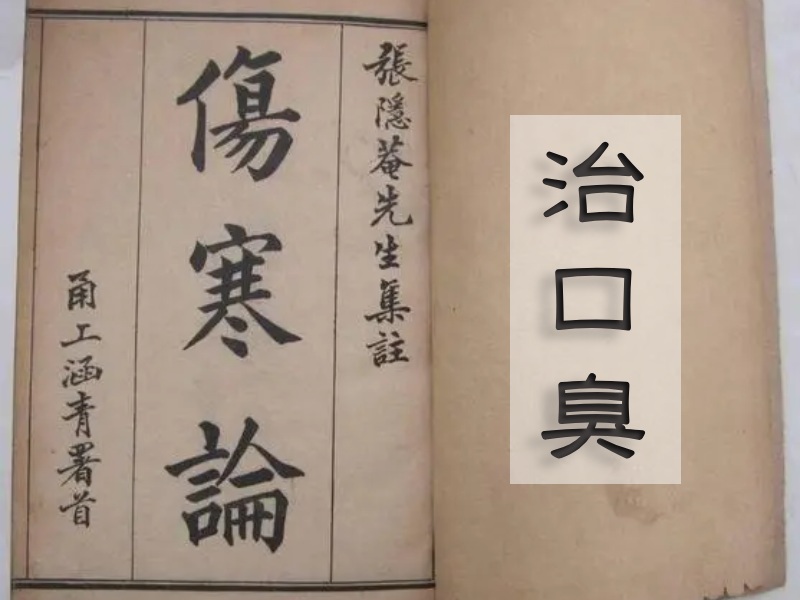 治口臭
張隱菴先生集註
傷寒論
甬工涵青署首